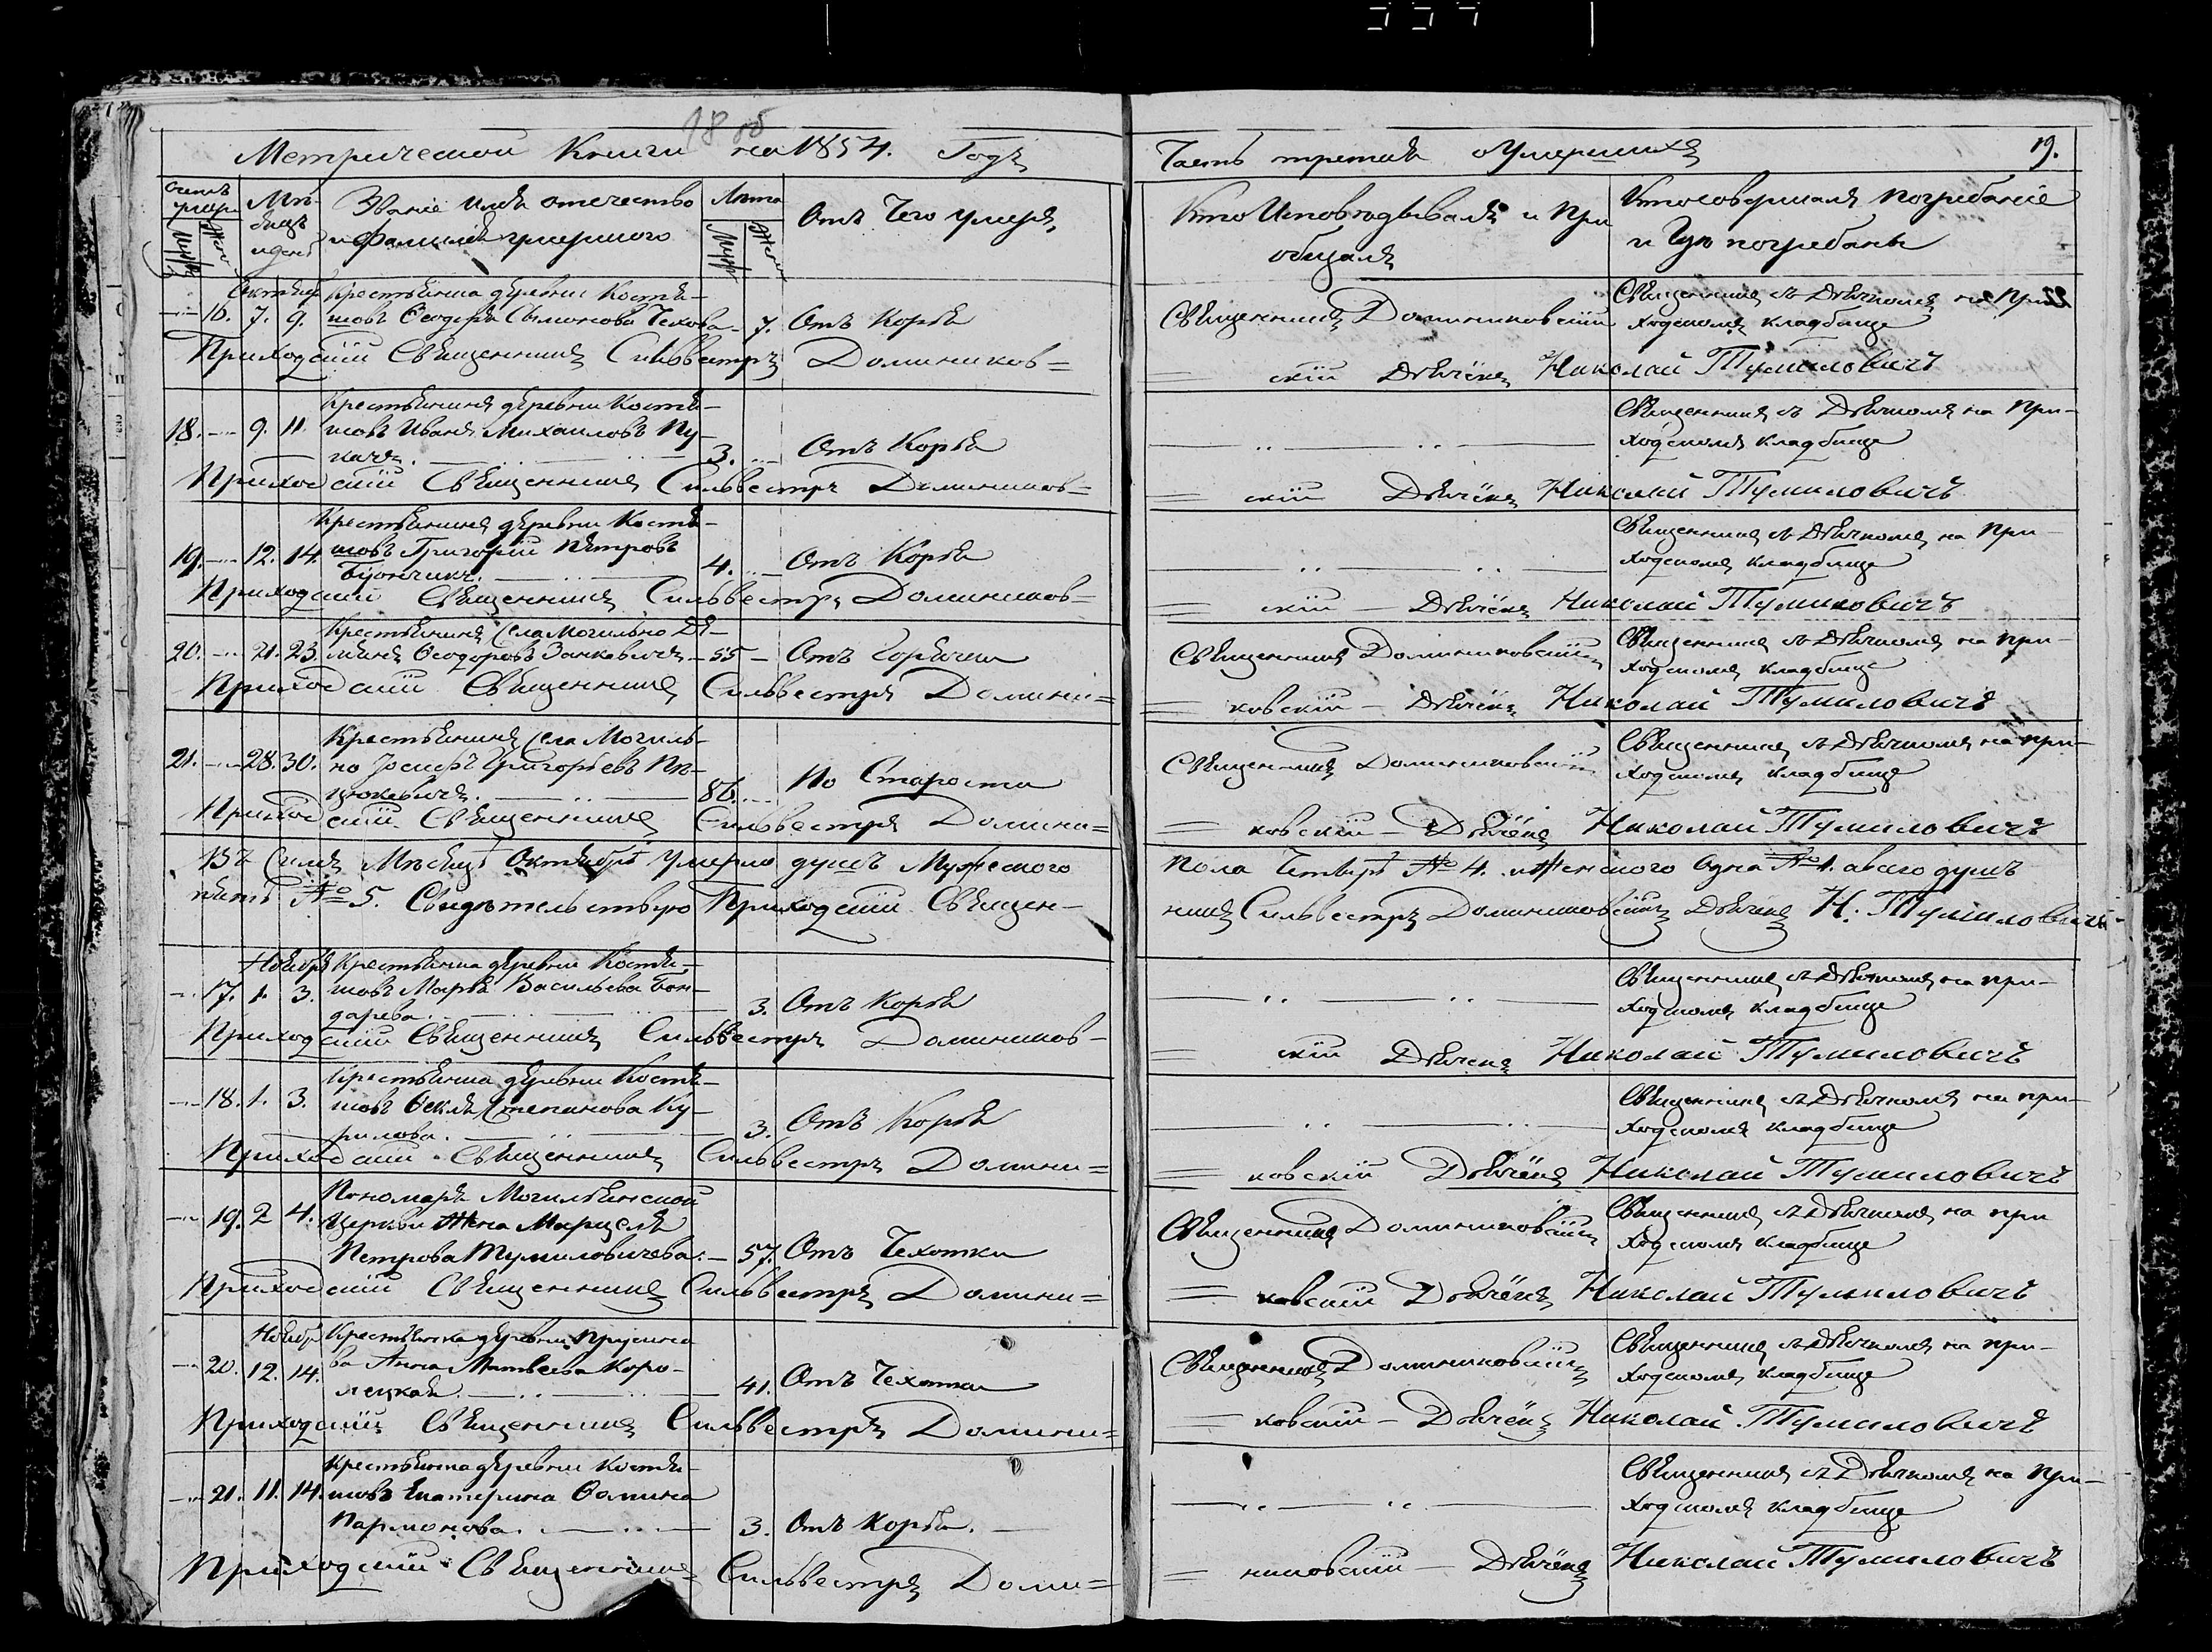 18 об
Метрической Книги на 1854. Годъ
Часть третія оУмершихъ 19.
Счетъ умер. Мѣсяцъ и день Званіе имя отечество и Фамилія умершаго Лѣта Отъ Чего умеръ,
Муж. Жен. Муж. Жен.
Кто Исповѣдывалъ и При
общалъ
Кто совершалъ погребаніе
и Гдѣ погребаны
Октября Крестьянка деревни Костя-
— 16. 7. 9. шовъ Ѳеодора Сымонова Чехова — 7. Отъ Корья
Священникъ Доминиковскій
Священникъ съ Дьячкомъ на При
ходскомъ кладбище
Приходскій Священникъ Сильвестръ Домиников=
= скій Дьячёкъ Николай Тумиловичъ
Крестьянинъ деревни Костя-
18. — 9. 11. шовъ Иванъ Михаиловъ Пу-
качъ. 3. — Отъ Корья
Священникъ съ Дьячкомъ на При-
ходскомъ кладбище
Приходскій Священникъ Сильвестръ Домиников=
= скій Дьячёкъ Николай Тумиловичъ
Крестьянинъ деревни Костя-
19. — 12. 14. шовъ Григорій Петровъ
4. — Отъ Корья
Священникъ съ Дьячкомъ на При-
ходскомъ кладбище
Приходскій Священникъ Сильвестръ Домиников=
= скій — Дьячёкъ Николай Тумиловичъ
Крестьянинъ Села Могильно Де-
20. — 21. 23. мянъ Ѳеодоровъ Занкевичъ — 55 — Отъ Горячки
Священникъ Доминиковскій
Священникъ съ Дьячкомъ на при-
ходскомъ кладбище
Приходскій Священникъ Сильвестръ Домини=
= ковскій — Дьячёкъ Николай Тумиловичъ
Крестьянинъ Села Могиль-
21. — 28. 30. но Іосифъ Григорьевъ Пе-
цюкевичъ. 86. — По Старости
Священникъ Доминиковскій
Священникъ съ Дьячкомъ на при-
ходскомъ кладбище
Приходскій Священникъ Сильвестръ Домини=
= ковскій — Дьячёкъ Николай Тумиловичъ
Въ Семъ Мѣсяцѣ Октябрѣ умерло душъ Мужескаго
пола Четыре № 4. и Женского Одна № 1. а всего душъ
пять № 5. Свидѣтельствую Приходскій Священ-
никъ Сильвестръ Доминиковскій Дьячёкъ Н. Тумиловичъ
Ноября Крестьянка деревни Костя-
— 17. 1. 3. шовъ Марья Васильева Бон-
дарева. 3. Отъ Корья
Священникъ съ Дьячкомъ на при-
ходскомъ кладбище
Приходскій Священникъ Сильвестръ Домиников-
= скій Дьячёкъ Николай Тумиловичъ
Крестьянка деревни Костя-
— 18. 1. 3. шовъ Ѳекла Степанова Ку-
рилова. 3. Отъ Корья
Священникъ съ Дьячкомъ на при-
ходскомъ кладбище
Приходскій Священникъ Сильвестръ Домини=
= ковскій Дьячёкъ Николай Тумиловичъ
Пономаря Могильянской
— 19. 2 4. Церкви Жена Марцеля
Петрова Тумиловичева. — 57. Отъ Чехотки
Священникъ Доминиковскій
Священникъ съ Дьячкомъ на при
ходскомъ кладбище
Приходскій Священникъ Сильвестръ Домини=
= ковскій Дьячёкъ Николай Тумиловичъ
Ноября Крестьянка деревни Прусино
— 20. 12. 14. ва Анна Матвеева Коро-
лецкая. 41. Отъ Чехотки
Священникъ Доминиковскій
Священникъ съ Дьячкомъ на при-
ходскомъ кладбище
Приходскій Священникъ Сильвестръ Домини=
= ковскій — Дьячёкъ Николай Тумиловичъ
Крестьянка деревни Костя-
— 21. 11. 14. шовъ Екатерина Ѳомина
Пармонова. 3. Отъ Корья.
Священникъ съ Дьячкомъ на при-
ходскомъ кладбище
Приходскій Священникъ= Сильвестръ Доми=
= никовскій — Дьячёкъ Николай Тумиловичъ